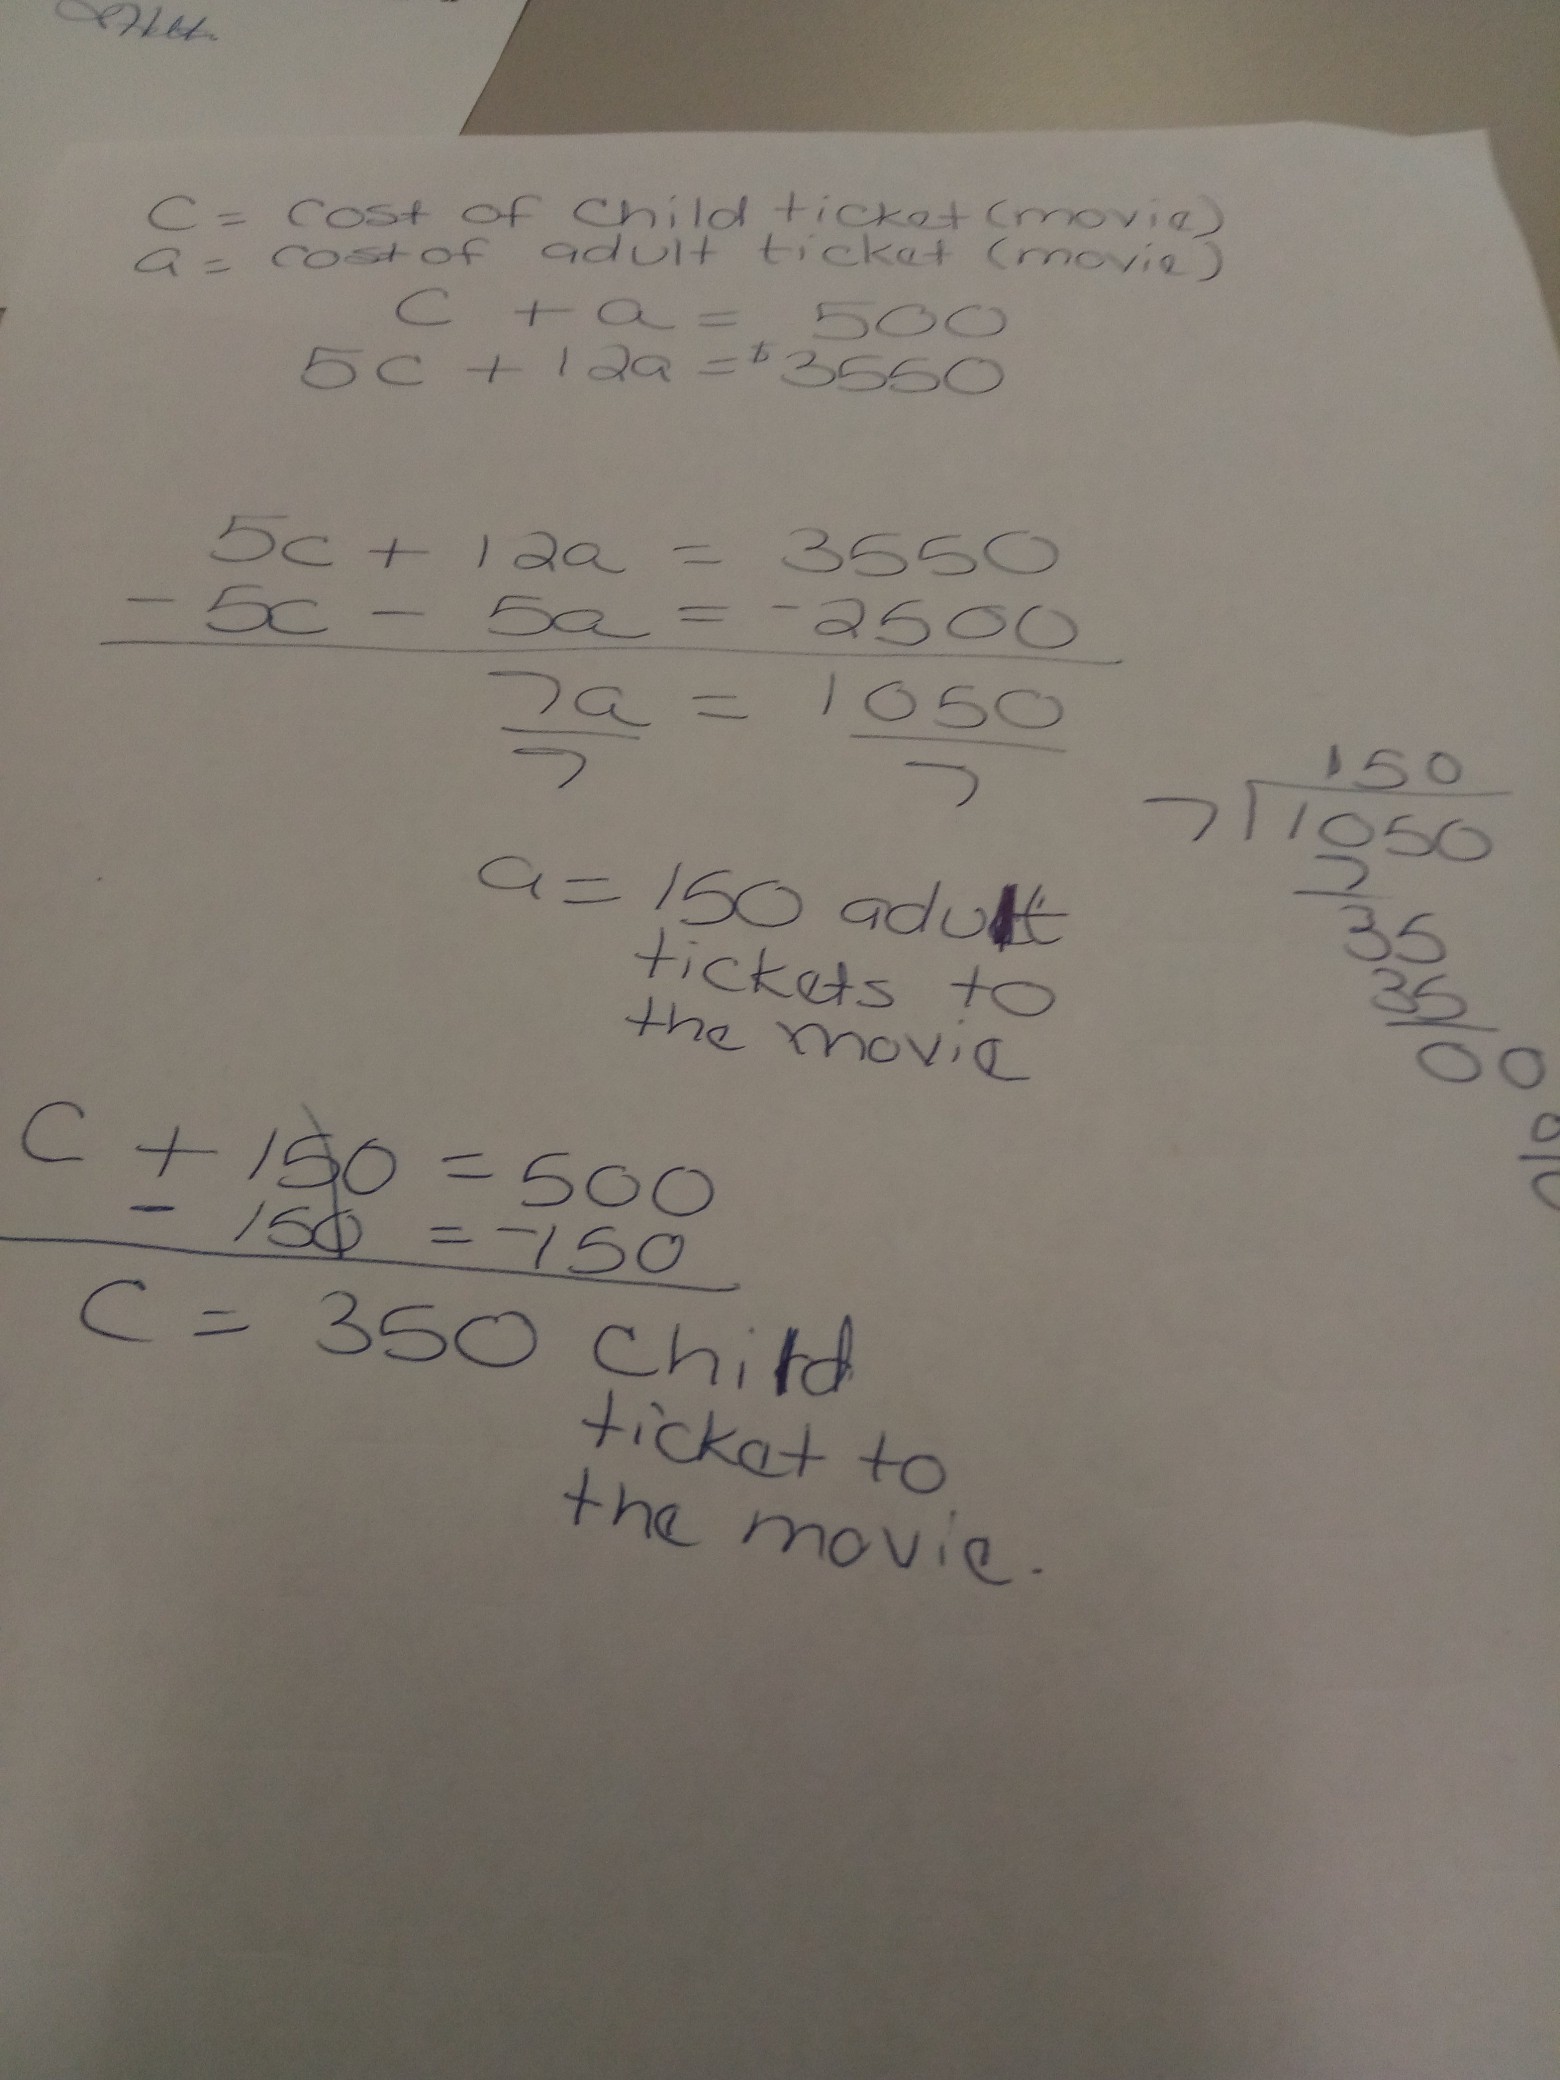 C = cost of child ticket (movie)
a = cost of adult ticket (movie)
C + a = 500
5C + 12a = $3550
5c + 12a = 3550
- 5c - 5a = -2500
7a = 1050
7 7
150
7 1050
7
35
35
00
a = 150 adult
tickets to
the movie
C + 150 = 500
- 150 = -150
C = 350 child
ticket to
the movie.